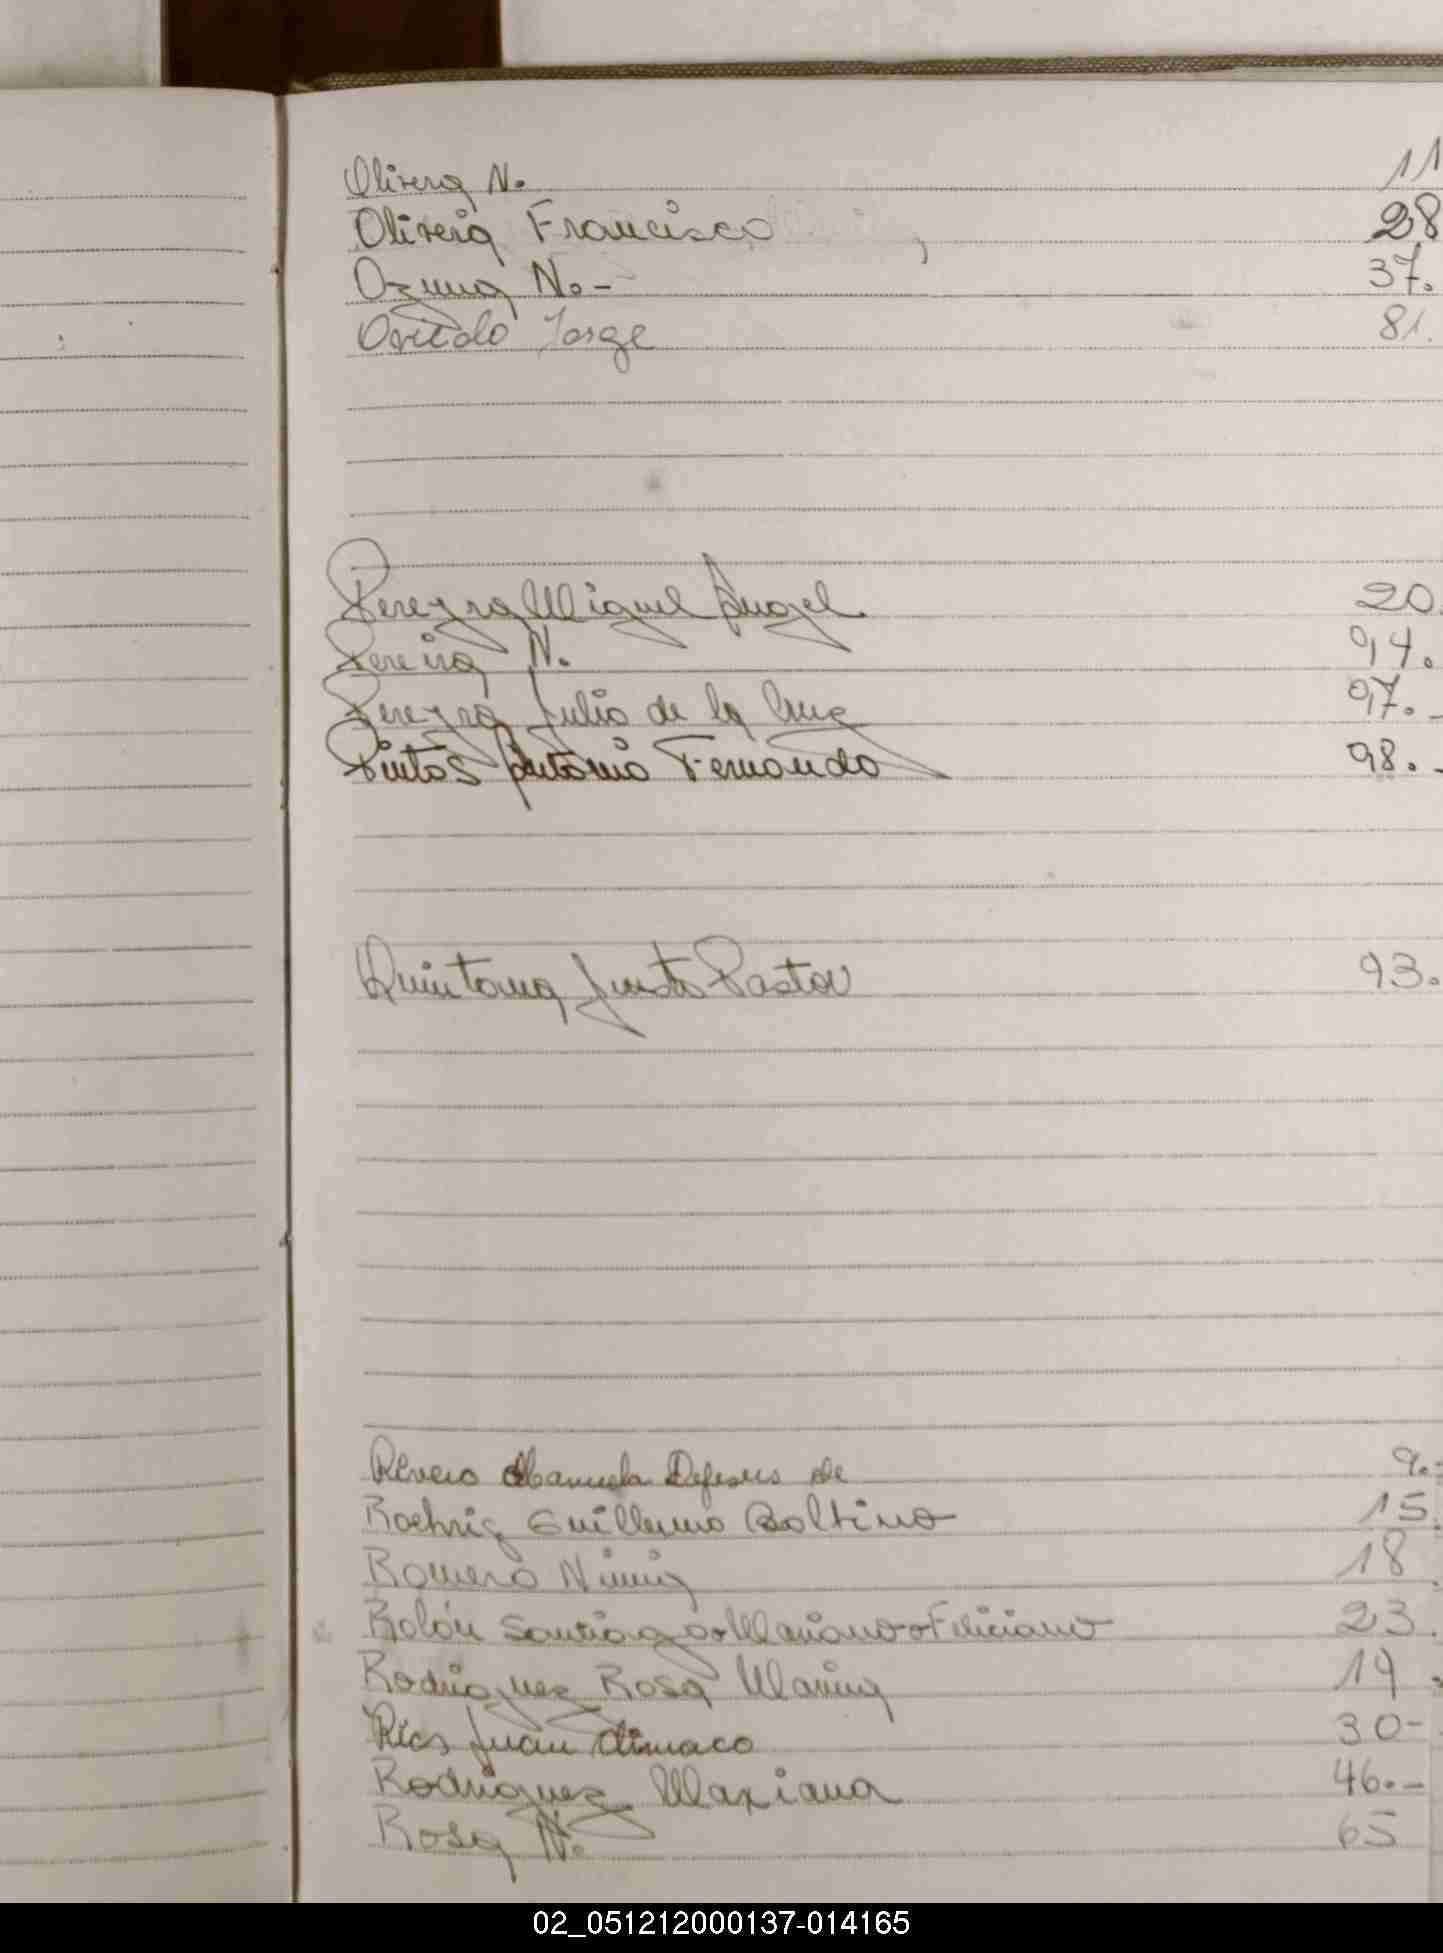 Olivera N. 11
Oliveia Francisco 28
Ozuna N.- 37.
Oviedo Jorge 81.
Pereyra Miguel Angel 20.
Pereira N. 94.
Pereyra Julio de la Cruz 97.-
Pintos Antonio Fernando 98.-
Quintana Justo Pastor 93.
Rivero Manuela Dejesus de 9.-
Roehrig Guillermo Boltino 15.
Romero Ninnia 18.
Rolón Santiago Mariano Feliciano 23.
Rodriguez Rosa Marina 19.
Rios Juan Climaco 30-
Rodriguez Maxiana 46.-
Rosa N. 65
02_051212000137-014165